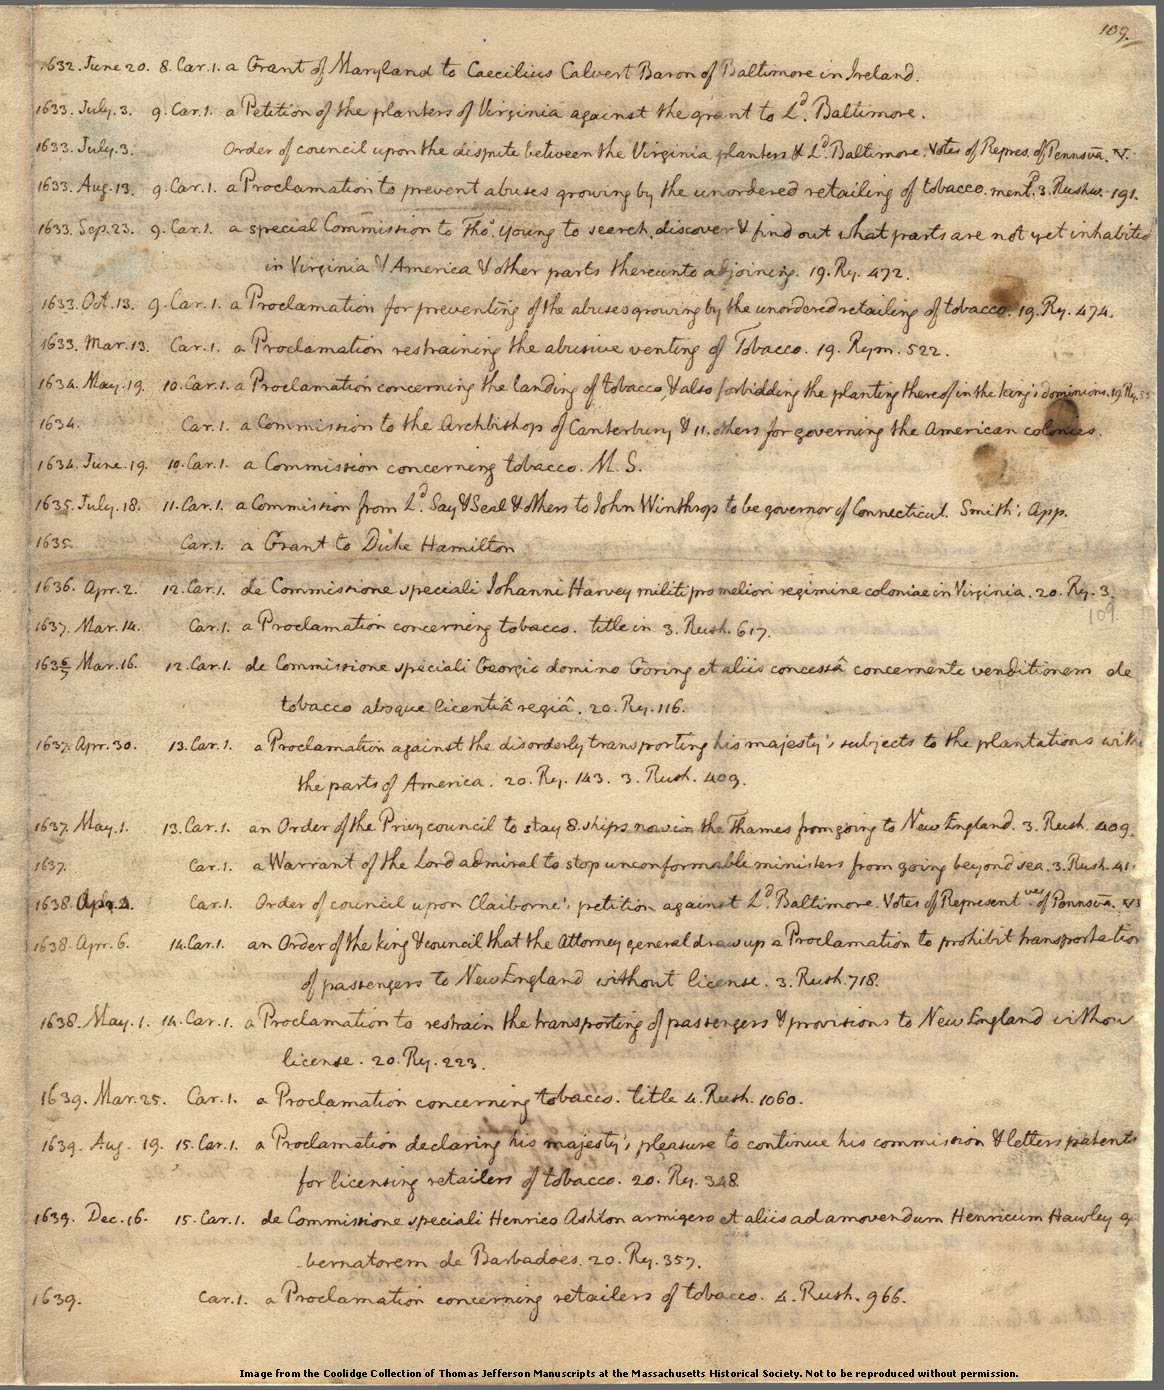 109.
1632. June 20. 8. Car. 1. a Grant of Maryland to Caecilius Calvert Baron of Baltimore in Ireland.
1633. July. 3. 9. Car. 1. a Petition of the planters of Virginia against the grant to Ld. Baltimore.
1633. July. 3. Order of council upon the dispute between the Virginia planters & Ld. Baltimore. Votes of Repres. of Pennsva. V.
1633. Aug. 13. 9. Car. 1. a Proclamation to prevent abuses growing by the unordered retailing of tobacco. mentd. 3. Rushw. 191.
1633. Sep. 23. 9. Car. 1. a special Commission to Thos. Young to search, discover & find out what parts are not yet inhabited
in Virginia & America & other parts thereunto adjoining. 19. Ry. 472.
1633. Oct. 13. 9. Car. 1. a Proclamation for preventing of the abuses growing by the unordered retailing of tobacco. 19. Ry. 474.
1633. Mar. 13. Car. 1. a Proclamation restraining the abusive venting of Tobacco. 19. Rym. 522.
1634. May. 19. 10. Car. 1. a Proclamation concerning the landing of tobacco, & also forbidding the planting thereof in the king's dominions. 19. Ry.
1634. Car. 1. a Commission to the Archbishop of Canterbury & 11. others for governing the American colonies.
1634. June. 19. 10. Car. 1. a Commission concerning tobacco. M. S.
1635. July. 18. 11. Car. 1. a Commission from Ld. Say & Seal & others to John Winthrop to be governor of Connecticut. Smith's App.
1635. Car. 1. a Grant to Duke Hamilton
1636. Apr. 2. 12. Car. 1. de Commissione speciali Johanni Harvey militi pro meliori regimine coloniae in Virginia. 20. Ry. 3.
109.
1637. Mar. 14. Car. 1. a Proclamation concerning tobacco. title in 3. Rush. 617.
1636/7 Mar. 16. 12. Car. 1. de Commissione speciali Georgio domino Goring et aliis concessâ concernente venditionem de
tobacco absque licentiâ regiâ. 20. Ry. 116.
1637. Apr. 30. 13. Car. 1. a Proclamation against the disorderly transporting his majesty's subjects to the plantations with
the parts of America. 20. Ry. 143. 3. Rush. 409.
1637. May. 1. 13. Car. 1. an Order of the Privy council to stay 8. ships now in the Thames from going to New England. 3. Rush. 409.
1637. Car. 1. a Warrant of the Lord admiral to stop unconformable ministers from going beyond sea. 3. Rush. 41
1638. Apr. 4. Car. 1. Order of council upon Claiborne's petition against Ld. Baltimore. Votes of Representves. of Pennsva.
1638. Apr. 6. 14. Car. 1. an Order of the king & council that the Attorney general draw up a Proclamation to prohibit transportation
of passengers to New England without license. 3. Rush. 718.
1638. May. 1. 14. Car. 1. a Proclamation to restrain the transporting of passengers & provisions to New England withou
license. 20. Ry. 223.
1639. Mar. 25. Car. 1. a Proclamation concerning tobacco. title 4. Rush. 1060.
1639. Aug. 19. 15. Car. 1. a Proclamation declaring his majesty's pleasure to continue his commission & letters patents
for licensing retailers of tobacco. 20. Ry. 348.
1639. Dec. 16. 15. Car. 1. de Commissione speciali Henrico Ashton armigero et aliis ad amovendum Henricum Hawley g
-bernatorem de Barbadoes. 20. Ry. 357.
1639. Car. 1. a Proclamation concerning retailers of tobacco. 4. Rush. 966.
Image from the Coolidge Collection of Thomas Jefferson Manuscripts at the Massachusetts Historical Society. Not to be reproduced without permission.